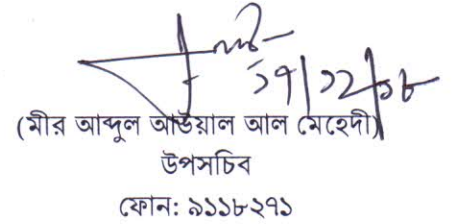 ১৭/১২/১৮
(মীর আব্দুল আউয়াল আল মেহেদী)
উপসচিব
ফোন: ৯১১৮২৭১